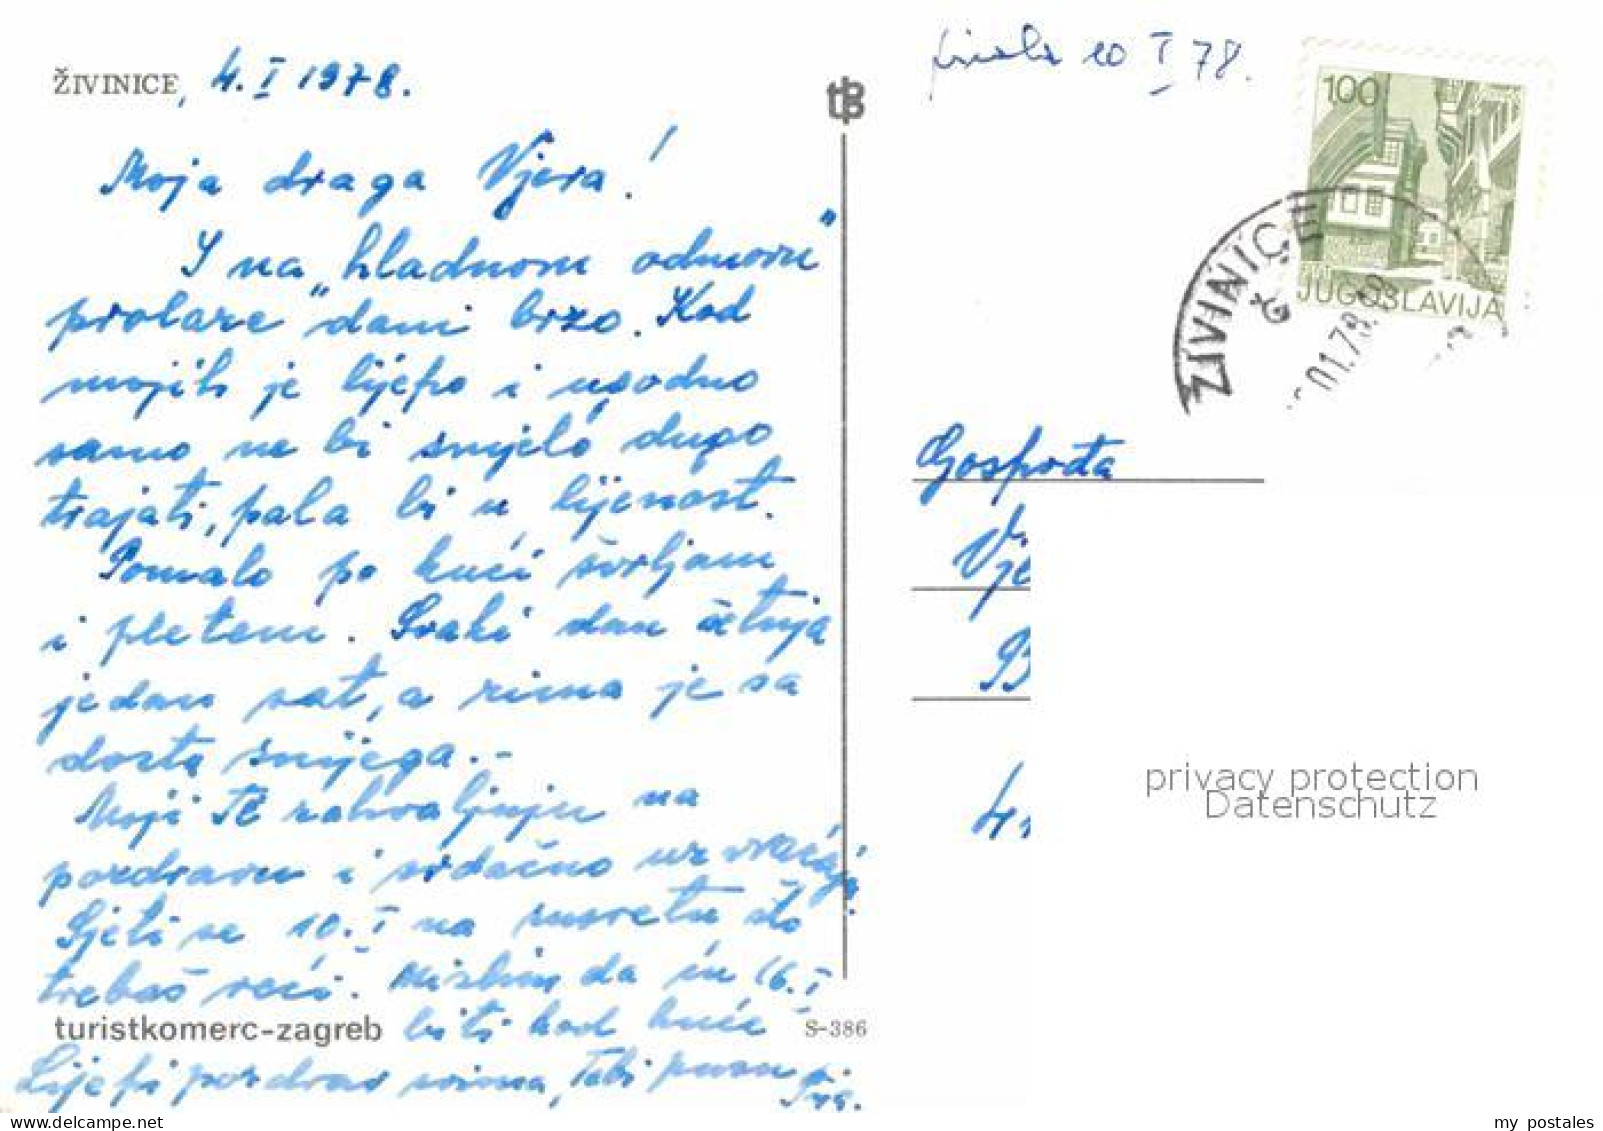 ŽIVINICE, 4. I 1978.
Moja draga Vjera!
I na „hladnom odmoru"
prolaze dani brzo. Kod
mojih je lijepo i ugodno
samo ne bi smjelo dugo
trajati, pala bi u lijenost.
Pomalo po kući švrljam
i pletem. Svaki dan šetnja
jedan sat, a zima je sa
dosta snijega.-
Moji Te zahvaljuju na
pozdravu i srdačno uzvraćaju.
Sjeti se 10. I na susretu što
trebaš reći. Mislim da ću 16. I
biti kod kuće
Lijepi pozdrav svima, Tebi
turistkomerc-zagreb
S-386
tz
10 I 78.
100
JUGOSLAVIJA
ŽIVINICE
01.78
Gospođa
Vje
B
41
privacy protection
Datenschutz
my postales